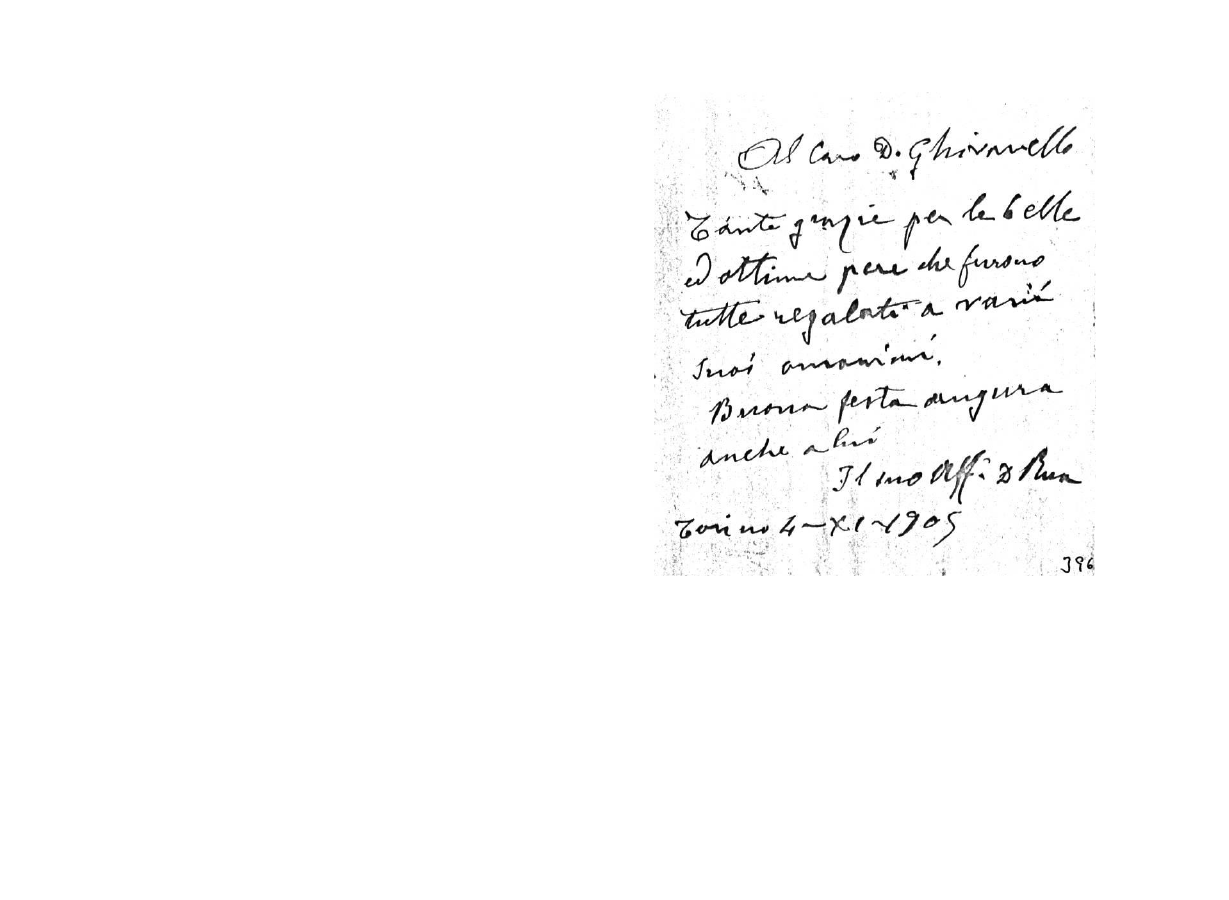 Al Caro D. Ghivarello
Tante grazie per le belle
ed ottime pere che furono
tutte regalate a varii
suoi omonimi.
Buona festa augura
anche a lui
Il suo Aff. D Rua
Torino 4-XI-1905
396